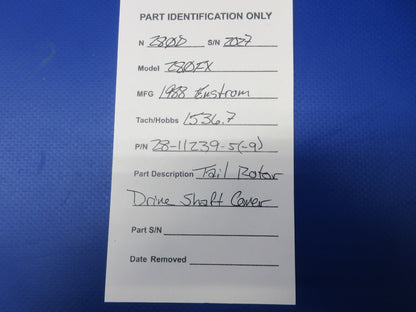 PART IDENTIFICATION ONLY
N 280D S/N 2027
Model 280FX
MFG 1988 Enstrom
Tach/Hobbs 1536.7
P/N 28-11239-5(-9)
Part Description Tail Rotor
Drive Shaft Cover
Part S/N
Date Removed